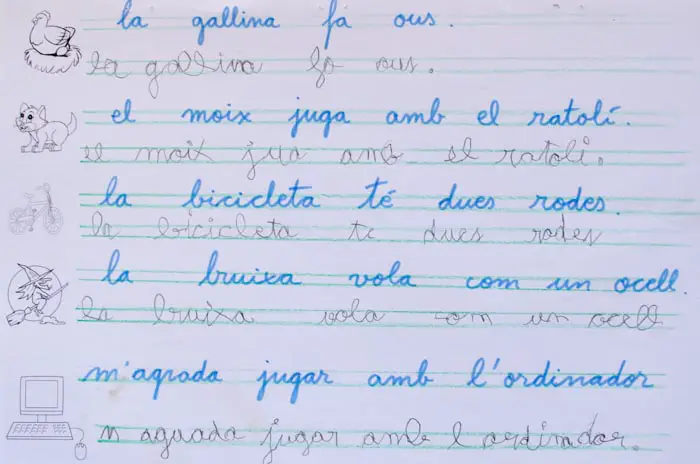 la gallina fa ous.
la gallina fo ous.
el moix juga amb el ratolí.
el moix jua amb el ratoli.
la bicicleta té dues rodes.
la bicicleta te dues rodes
la bruixa vola com un ocell.
la bruixa vola com un ocell
m'agrada jugar amb l'ordinador
m aguada jugar amb l ordinador.